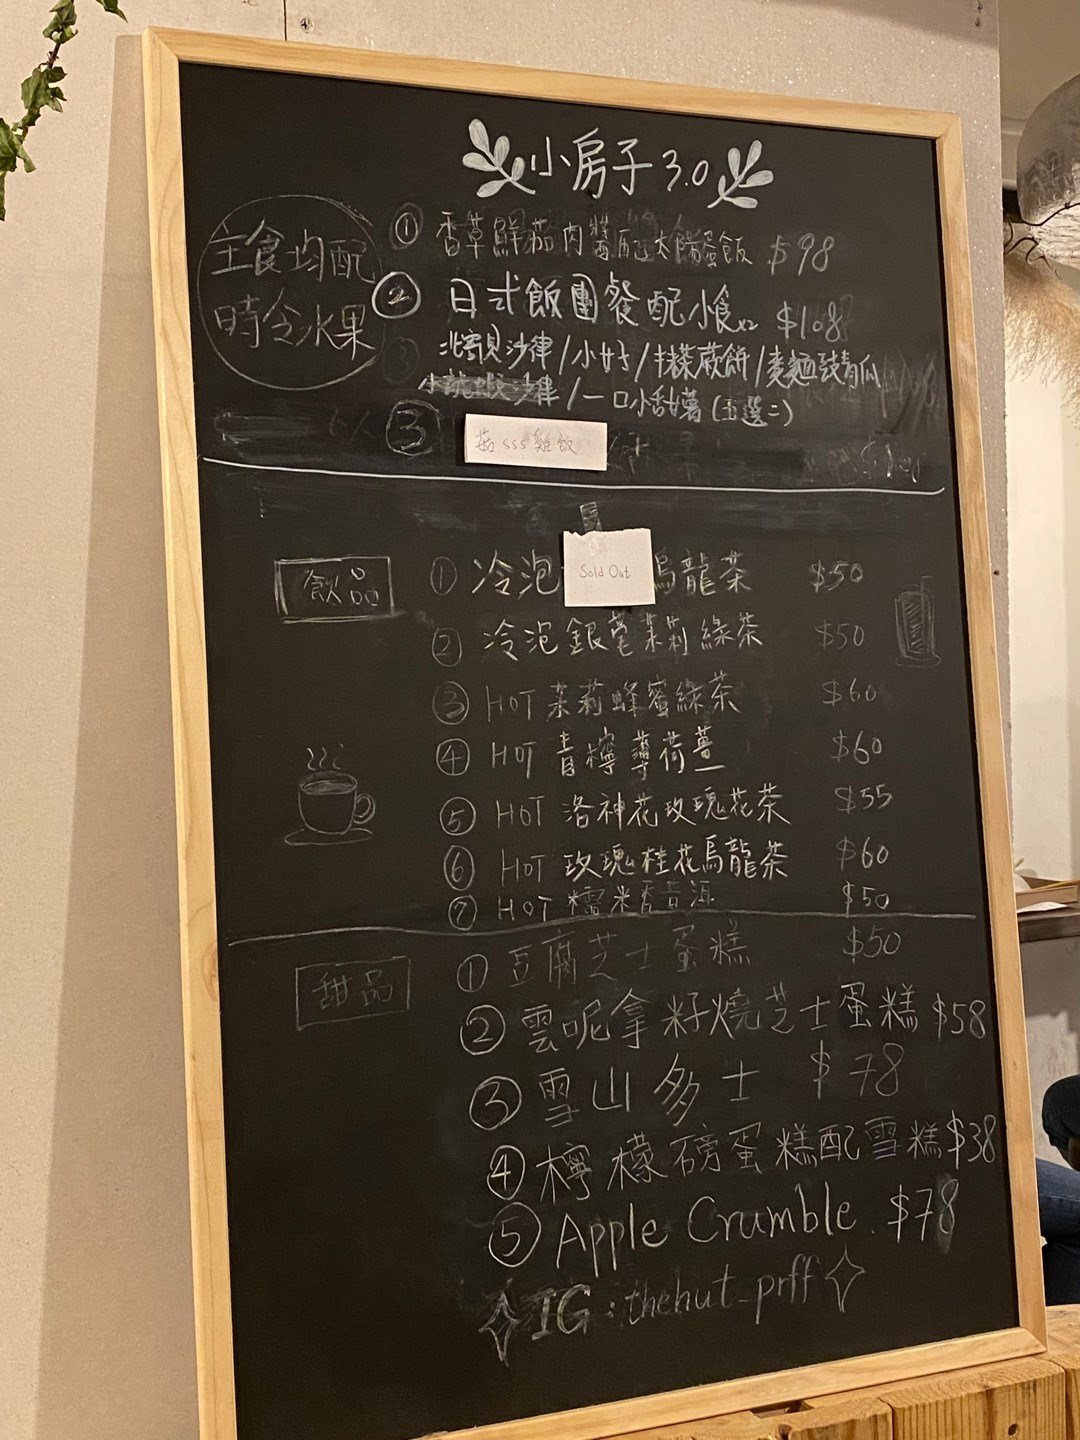 小房子 3.0
主食均配
時令水果
① 香草鮮茄肉醬配太陽蛋飯 $98
② 日式飯團餐配小食x2 $108
北寄貝沙律/小丸子/抹茶蕨餅/麥麵豉青瓜
小龍蝦沙律/一口小甜薯(五選二)
③ 菇sss雞飯
飲品
① 冷泡 烏龍茶 $50
Sold Out
② 冷泡銀毫茉莉綠茶 $50
③ HOT 茉莉蜂蜜綠茶 $60
④ HOT 青檸薄荷薑 $60
⑤ HOT 洛神花玫瑰花茶 $55
⑥ HOT 玫瑰桂花烏龍茶 $60
⑦ HOT 糯米香普洱 $50
甜品
① 豆腐芝士蛋糕 $50
② 雲呢拿籽燒芝士蛋糕 $58
③ 雪山多士 $78
④ 檸檬磅蛋糕配雪糕 $38
⑤ Apple Crumble. $78
IG : thehut_prff